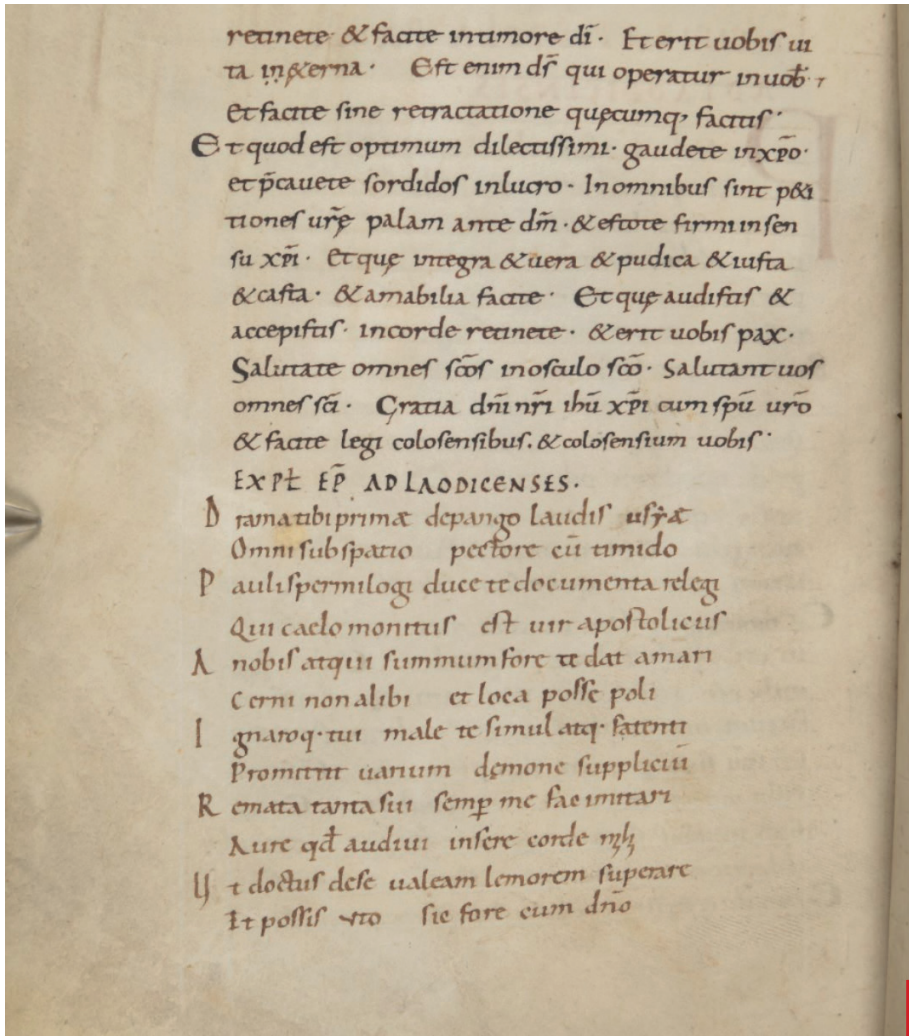 retinete & facite intimore di̅ · Et erit uobis ui
ta in&erna · Est enim ds̅ qui operatur inuob̅ ·,
Et facite sine retractatione quęcumq, facitis ·
Et quod est optimum dilectissimi · gaudete inxp̅o ·
et p̅cauete sordidos inlucro · Inomnibus sint p&i
tiones ur̅ę palam ante dm̅ · & estote firmi insen
su xp̅i · Et quę integra & uera & pudica & iusta
& casta · & amabilia facite · Et quę audistis &
accepistis · incorde retinete · & erit uobis pax ·
Salutate omnes sc̅os inosculo sc̅o · Salutant uos
omnes sc̅i · Gratia dn̅i nr̅i ihu̅ xp̅i cum spu̅ uro̅
& facite legi colosensibus. & colosensium uobis ·
EXPƚ EP̅ AD LAODICENSES ·
D ramatibi primæ depango laudis
Omni sub spatio pectore cu̅ timido
P auli spermilogi duce te documenta relegi
Qui caelo monitus est uir apostolicus
A nobis atqui summum fore te dat amari
Cerni non alibi et loca posse poli
I gnaroq· tui male te simul atq· fatenti
Promittit uarium dęmone suppliciu̅
R emata tanta sui semp̅ me fac imitari
Aure qd̅ audiui insere corde
Ut doctus dese ualeam lemorem superare
Et possis sic fore cum dn̅o